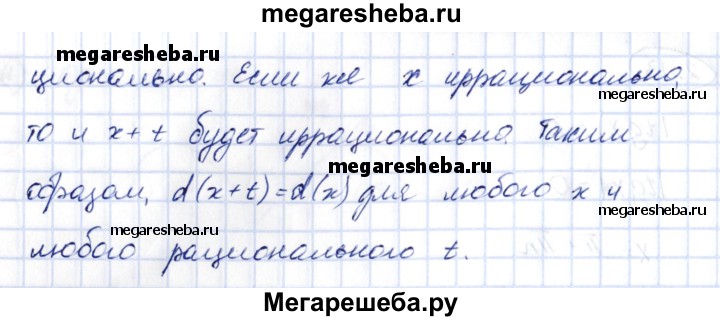 megaresheba.ru
megaresheba.ru
ционально. Если же x иррационально,
megaresheba.ru
то и x+t будет иррационально. Таким
megaresheba.ru
образом, d(x+t)=d(x) для любого x и
megaresheba.ru
megaresheba.ru
любого рационального t.
Мегарешеба.ру